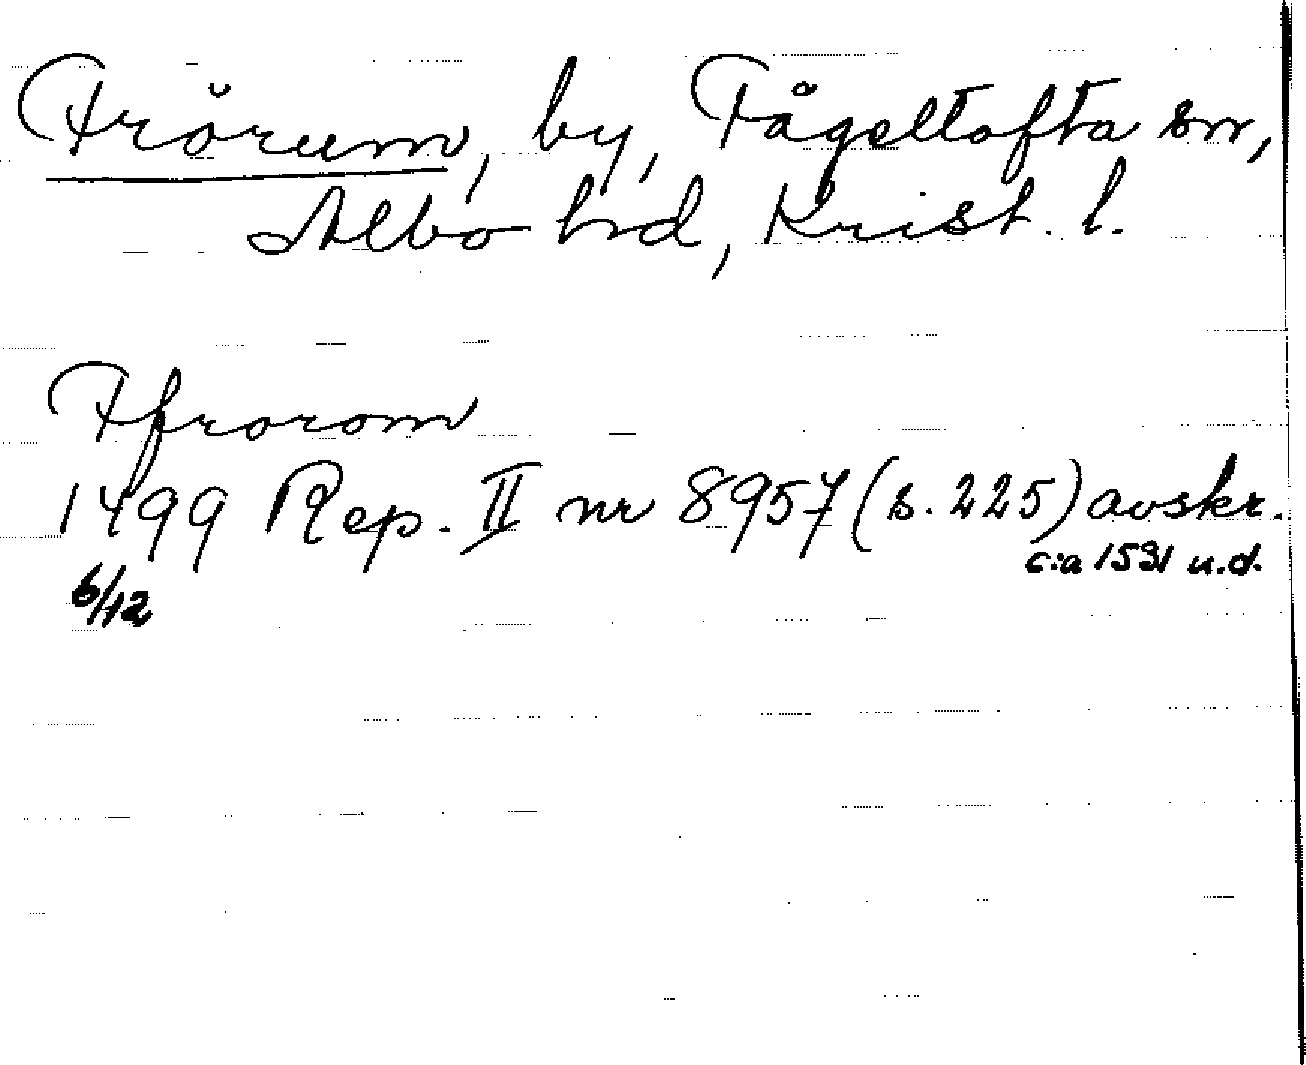 Frörum, by, Fågeltofta sn,
Albo hd, Krist. l.
Ffrorom
1499 Rep. II nr 8957 (s. 225) avskr.
6/12 c:a 1531 u.d.